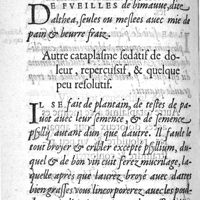 DE FVEILLES de bimauve, dite
Dalthea, seules ou meslees avec mie de
pain & beurre fraiz.
Autre cataplasme sedatif de do-
leur, repercussif, & quelque
peu resolutif.
IL SE fait de plantain, de testes de pa-
vot avec leur semence, & de semence
psyllij autant dun que dautre. Il faut le
tout broyer & cribler excepte psyllium, du-
quel & de bon vin cuit ferez mucilage, la-
quelle apres que laurez broye avec dattes
bien grasses vous lincorporerez avec les poul-